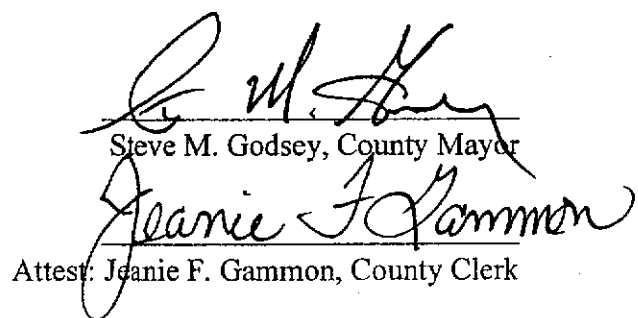 St M. Godsey
Steve M. Godsey, County Mayor
Jeanie F Gammon
Attest: Jeanie F. Gammon, County Clerk